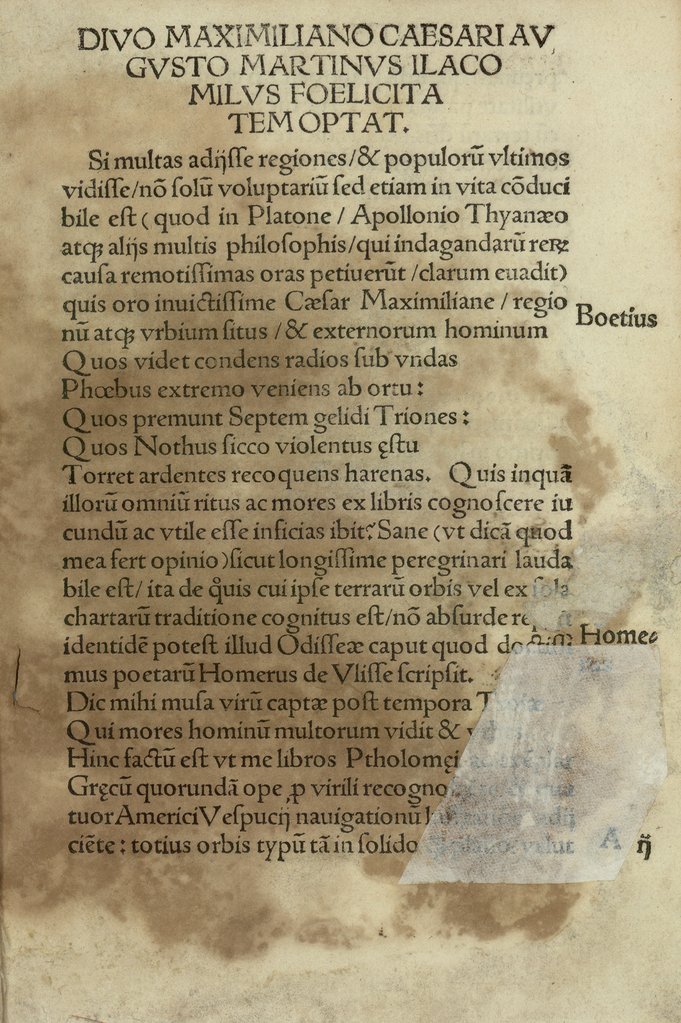 DIVO MAXIMILIANO CAESARI AV
GVSTO MARTINVS ILACO
MILVS FOELICITA
TEM OPTAT.
Si multas adijſſe regiones/& populorū vltimos
vidiſſe/nō ſolū voluptariū ſed etiam in vita cōduci
bile eſt (quod in Platone / Apollonio Thyanæo
atqꝫ alijs multis philoſophis/qui indagandarū reꝝ
cauſa remotiſſimas oras petiuerūt /clarum euadit)
quis oro inuictiſſime Cæſar Maximiliane / regio
nū atqꝫ vrbium ſitus /& externorum hominum
Boetius
Quos videt condens radios ſub vndas
Phœbus extremo veniens ab ortu:
Quos premunt Septem gelidi Triones:
Quos Nothus ſicco violentus ęſtu
Torret ardentes recoquens harenas. Quis inquā
illorū omniū ritus ac mores ex libris cognoſcere iu
cundū ac vtile eſſe inficias ibit? Sane (vt dicā quod
mea fert opinio) ſicut longiſſime peregrinari lauda
bile eſt/ ita de q̊uis cui ipſe terrarū orbis vel ex ſola
chartarū traditione cognitus eſt/nō abſurde
identidē poteſt illud Odiſſeæ caput quod doctiſſi
Home
mus poetarū Homerus de Vliſſe ſcripſit.
Dic mihi muſa virū captæ poſt tempora Troiæ
Qui mores hominū multorum vidit &
Hinc factū eſt vt me libros Ptholomęi ad exēplar
Gręcū quorundā ope ꝓ virili recogno
tuor Americi Veſpucij nauigationū adij
ciēte: totius orbis typū tā in ſolido velut
A ij